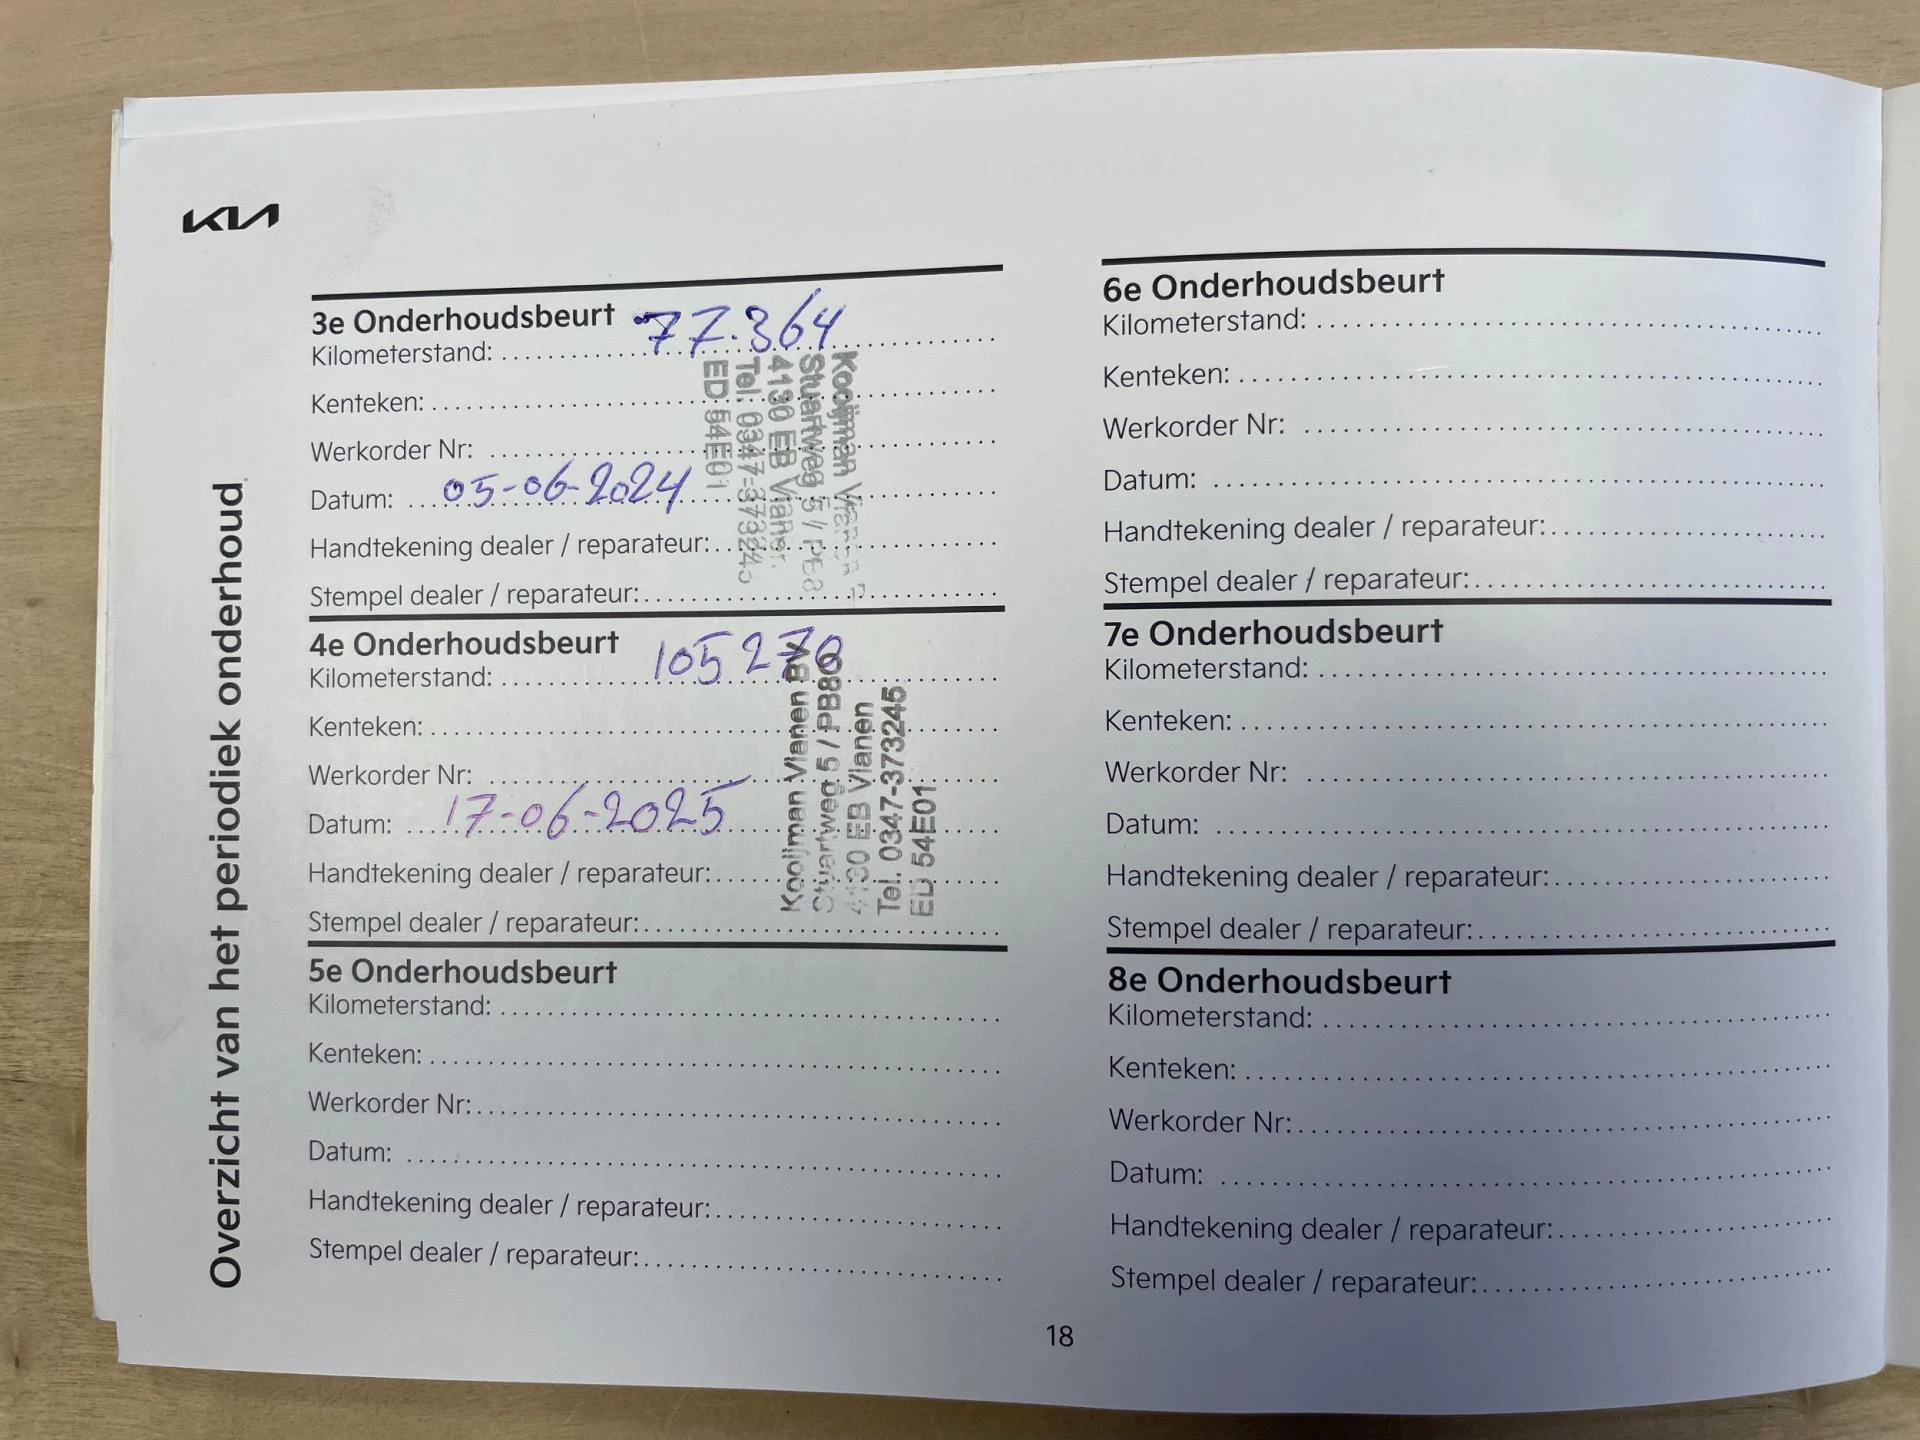 KIA
Overzicht van het periodiek onderhoud
3e Onderhoudsbeurt
Kilometerstand: 77.364
Kenteken:
Werkorder Nr:
Datum: 05-06-2024
Handtekening dealer / reparateur:
Stempel dealer / reparateur:
Kooijman Vianen
Stuartweg 5 / PB8
4130 EB Vianen
Tel. 0347-373245
ED 54E01
4e Onderhoudsbeurt
Kilometerstand: 105270
Kenteken:
Werkorder Nr:
Datum: 17-06-2025
Handtekening dealer / reparateur:
Stempel dealer / reparateur:
Kooijman Vianen BV
Stuartweg 5 / PB80
4130 EB Vianen
Tel. 0347-373245
ED 54E01
5e Onderhoudsbeurt
Kilometerstand:
Kenteken:
Werkorder Nr:
Datum:
Handtekening dealer / reparateur:
Stempel dealer / reparateur:
6e Onderhoudsbeurt
Kilometerstand:
Kenteken:
Werkorder Nr:
Datum:
Handtekening dealer / reparateur:
Stempel dealer / reparateur:
7e Onderhoudsbeurt
Kilometerstand:
Kenteken:
Werkorder Nr:
Datum:
Handtekening dealer / reparateur:
Stempel dealer / reparateur:
8e Onderhoudsbeurt
Kilometerstand:
Kenteken:
Werkorder Nr:
Datum:
Handtekening dealer / reparateur:
Stempel dealer / reparateur:
18